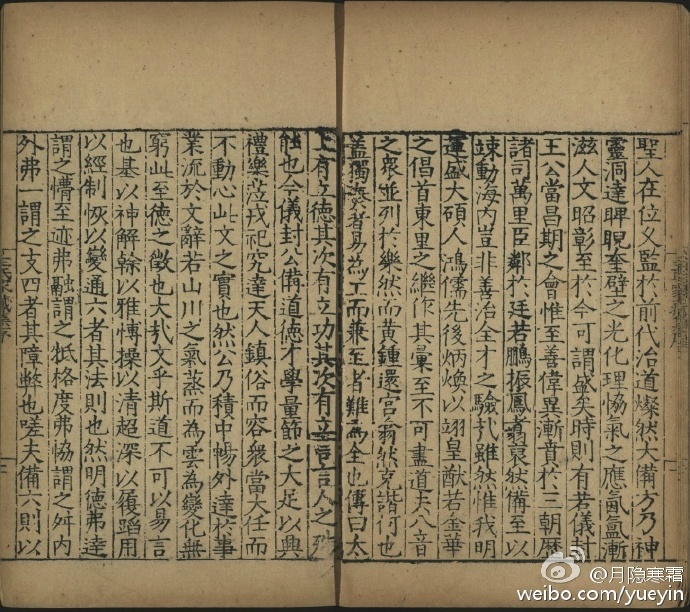 聖人在位又監於前代治道燦然大備方乃神
靈洞達睥睨奎璧之光化理恊氣之應氤氳漸
滋人文昭彰至於今可謂盛矣時則有若儀封
王公當昌期之會惟至善偉異漸音於三朝歷
諸司萬里臣鄰於廷若鵬振鳳翥裒狀備至以
竦動海内豈非善治全才之驗㢤雖然惟我明
運盛大碩人鴻儒先後炳煥以翊皇猷若金華
之倡首東里之繼作其彙至不可盡道夫八音
之衆並列於樂然而黃鍾還宮翕然克諧何也
蓋獨美者易為工而兼至者難為全也傳曰太
上有立德其次有立功其次有立言言人之
能也今儀封公備道德才學量節之大足以興
禮樂蒞戎祀究達天人鎮俗而容衆當大任而
不動心此文之實也然公乃積中暢外達於事
業流於文辭若山川之氣蒸而為雲為變化無
窮此至德之徵也大㢤文乎斯道不可以易言
也基以神解榦以雅慱操以清超深以履蹈用
以經制恢以變通六者其法則也然明德弗達
謂之慒至迹弗融謂之牴格度弗恊謂之舛内
外弗一謂之支四者其障弊也嗟夫備六則以
@月隐寒霜
weibo.com/yueyin